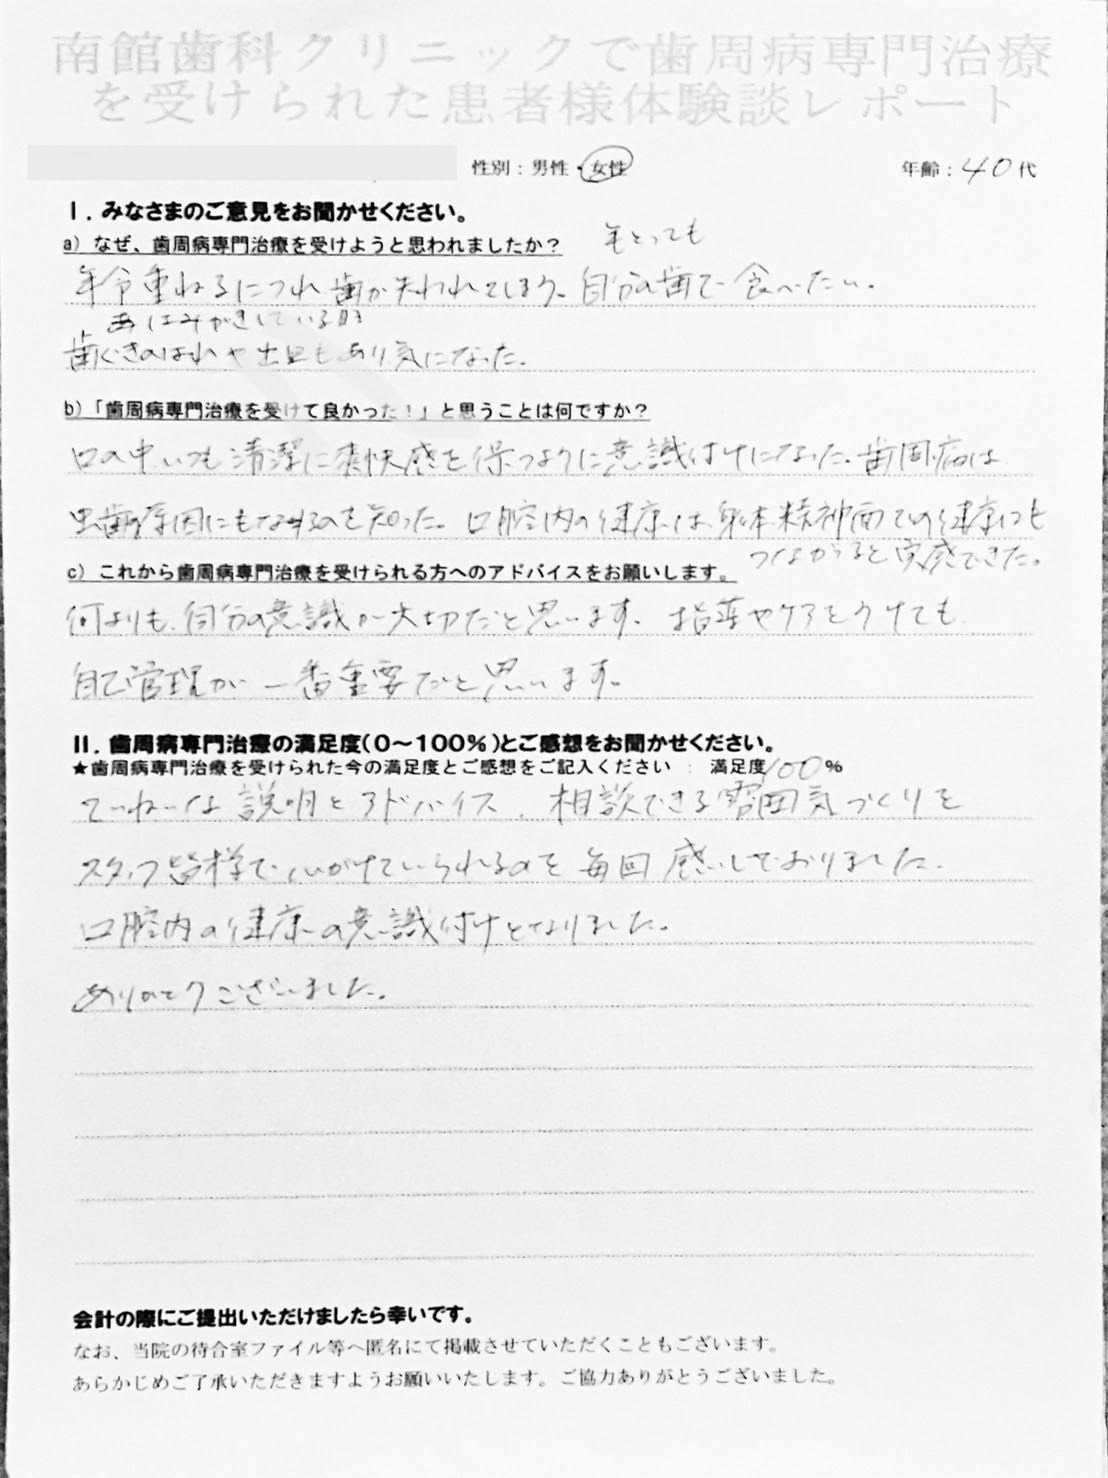 南館歯科クリニックで歯周病専門治療
を受けられた患者様体験談レポート
性別：男性・女性 年齢：40代
Ⅰ．みなさまのご意見をお聞かせください。
a）なぜ、歯周病専門治療を受けようと思われましたか？
年とっても
年令重ねるにつれ歯が失われてしまう。自分の歯で食べたい。
はみがきしている時
歯ぐきのはれや出血もあり気になった。
b）「歯周病専門治療を受けて良かった！」と思うことは何ですか？
口の中いつも清潔に爽快感を保つように意識付けになった。歯周病は
虫歯の原因にもなるのを知った。口腔内の健康は身体精神面での健康にも
つながると実感できた。
c）これから歯周病専門治療を受けられる方へのアドバイスをお願いします。
何よりも、自分の意識が大切だと思います。指導やケアをうけても
自己管理が一番重要だと思います。
II．歯周病専門治療の満足度(0～100%)とご感想をお聞かせください。
★歯周病専門治療を受けられた今の満足度とご感想をご記入ください ： 満足度100%
ていねいな説明とアドバイス、相談できる雰囲気づくりを
スタッフ皆様で心がけていられるのを毎回感じておりました。
口腔内の健康の意識付けとなりました。
ありがとうございました。
会計の際にご提出いただけましたら幸いです。
なお、当院の待合室ファイル等へ匿名にて掲載させていただくこともございます。
あらかじめご了承いただきますようお願いいたします。ご協力ありがとうございました。